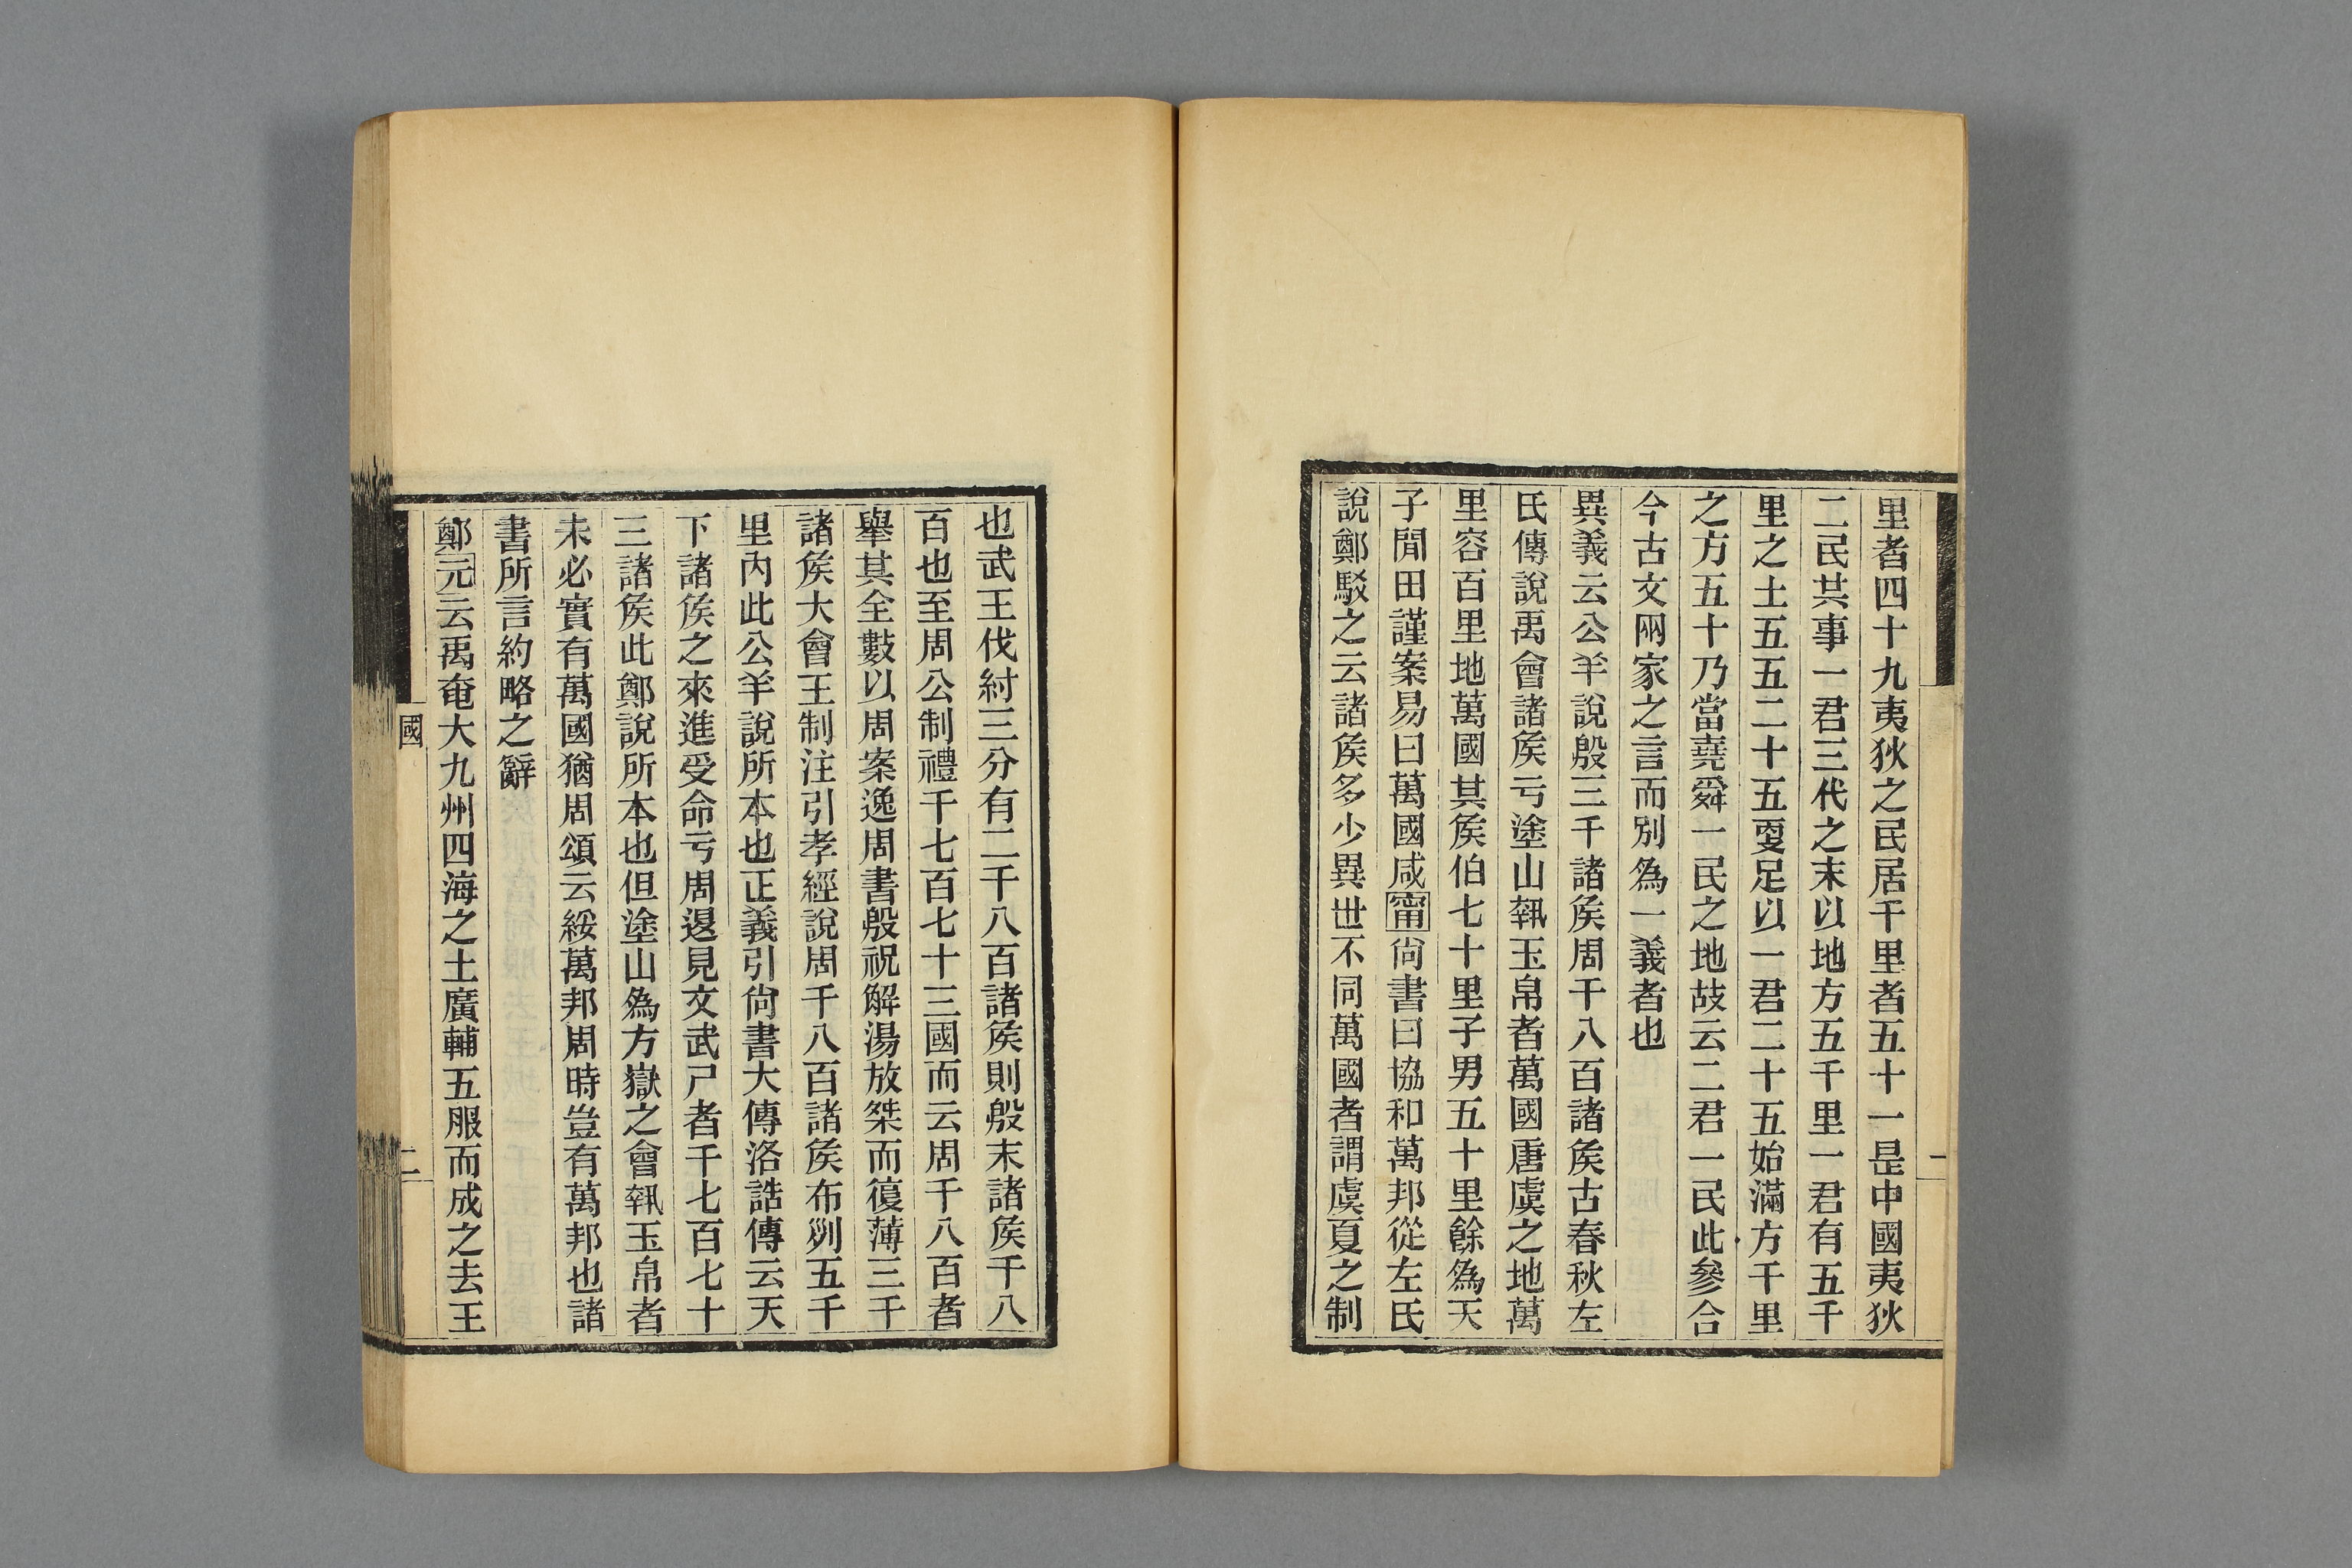 里者四十九夷狄之民居千里者五十一昰中國夷狄
二民共事一君三代之末以地方五千里一君有五千
里之土五五二十五耎足以一君二十五始滿方千里
之方五十乃當堯舜一民之地故云二君一民此參合
今古文网家之言而別爲一義者也
異義云公羊說殷三千諸矦周千八百諸矦古春秋左
氏傳說禹會諸矦亏塗山執玉帛者萬國唐虞之地萬
里容百里地萬國其矦伯七十里子男五十里餘爲天
子閒田謹案易曰萬國咸甯尙書曰協和萬邦從左氏
說鄭駁之云諸矦多少異世不同萬國者謂虞夏之制
也武王伐紂三分有二千八百諸矦則殷末諸矦千八
百也至周公制禮千七百七十三國而云周千八百者
舉其全數以周案逸周書殷祝解湯放桀而復薄三千
諸矦大會王制注引孝經說周千八百諸矦布列五千
里內此公羊說所本也正義引尙書大傳洛誥傳云天
下諸矦之來進受命亏周退見文武尸者千七百七十
三諸矦此鄭說所本也但塗山爲方嶽之會執玉帛者
未必實有萬國猶周頌云綏萬邦周時豈有萬邦也諸
書所言約略之辭
鄭元云禹奄大九州四海之土廣輔五服而成之去王
國
二